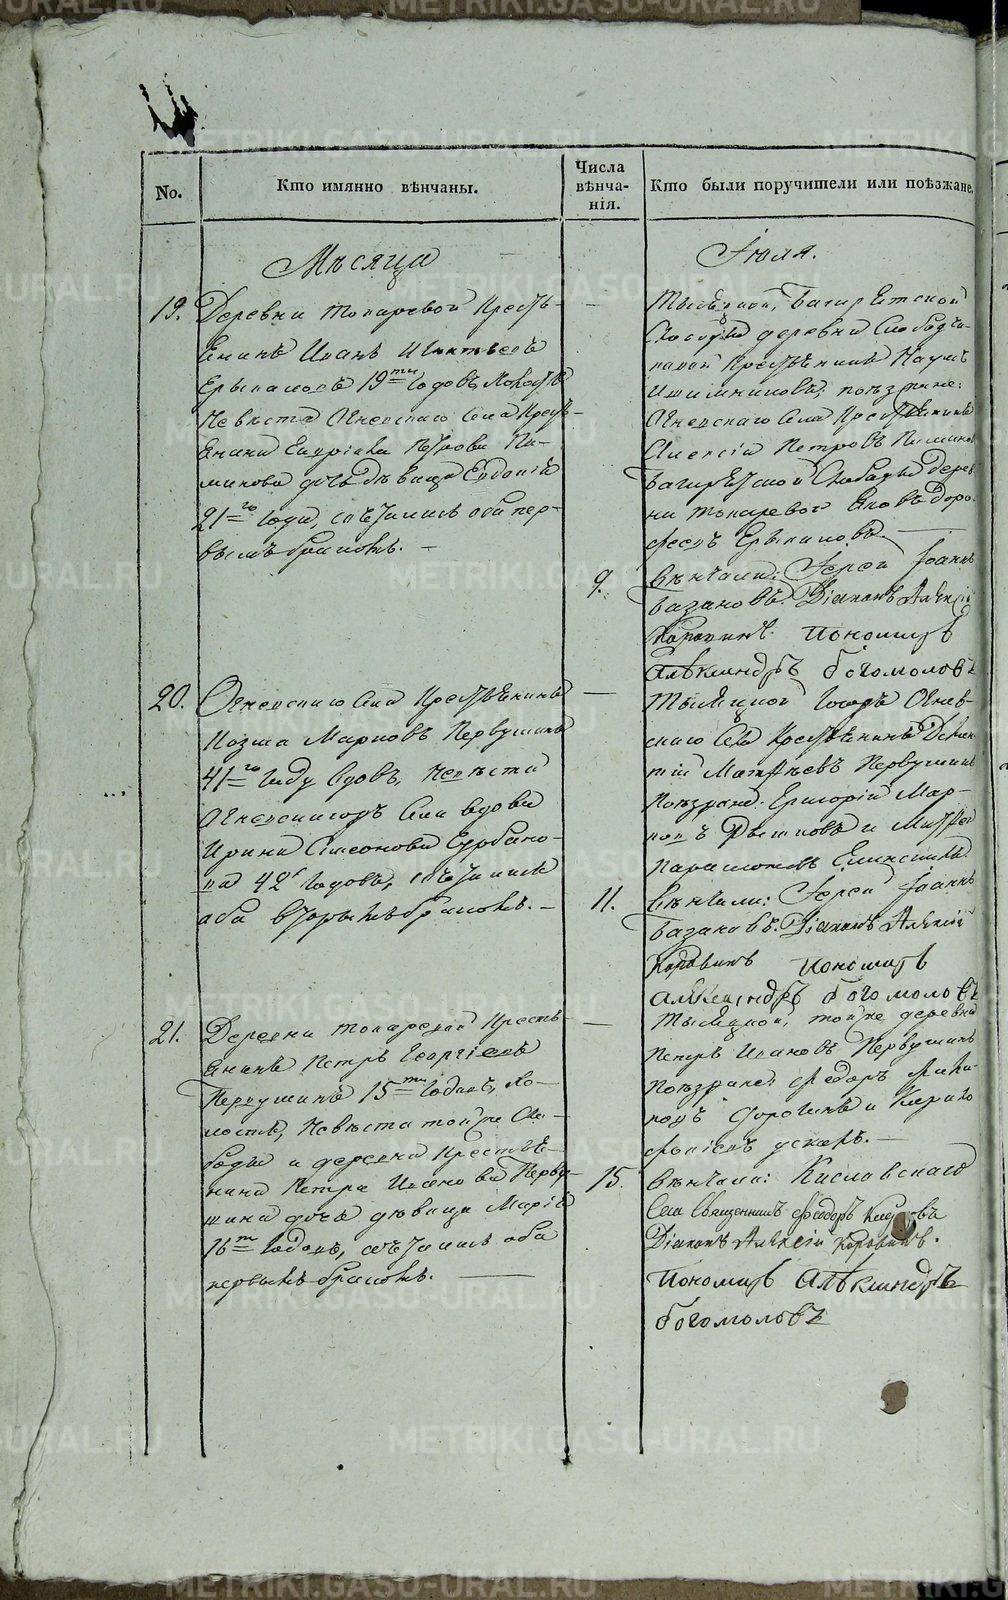 No.
Кто имянно вѣнчаны.
Числа
вѣнча-
нія.
Кто были поручители или поѣзжане.
Мѣсяца
Іюля.
19.
Деревни Токаревой Кресть-
янинъ Иванъ
19ти годовъ, Холостъ
Невѣста Огневскаго Села Кресть-
янина Гавріила Петрова Пи-
минова дочь дѣвица Евдокія
21го года, сочетались оба пер-
вымъ бракомъ.
9.
Тысяцкой, Багарякской
Слободы деревни
Крестьянинъ Наумъ
поѣзжане:
Огневскаго Села Крестьянинъ
Алексій Петровъ Пиминовъ
Багарякской Слободы дерев-
ни Токаревой Яковъ Доро-
феевъ
вѣнчали: Іерей Іоаннъ
Базановъ. Діаконъ Алексій
Коровинъ. Пономарь
Александръ Богомоловъ
20.
Огневскаго Села Крестьянинъ
Козма Марковъ Первушинъ
41го году вдовъ, невѣста
Огневскагожъ Села вдова
Ирина Симеонова Сурбако-
ва 42х годовъ, сочетались
оба вторымъ бракомъ.
11.
Тысяцкой тогожъ Огнев-
скаго Села Крестьянинъ
Матѳѣевъ Первушинъ
Поѣзжане: Григорій Мар-
ковъ и Матѳей
вѣнчали: Іерей Іоаннъ
Базановъ. Діаконъ Алексій
Коровинъ Пономарь
Александръ Богомоловъ
21.
Деревни Токаревой Кресть-
янинъ Петръ Георгіевъ
Первушинъ 15ти годовъ, Хо-
лостъ, Невѣста тойже Сло-
боды и деревни Крестья-
нина Петра Иванова Перву-
шина дочь дѣвица Марія
16ти годовъ, сочетались оба
первымъ бракомъ.
15.
Тысяцкой, тойже деревни
Петръ Ивановъ Первушинъ
Поѣзжане: Ѳедоръ
Сорокинъ и
вѣнчали: Кисловскаго
Села Священникъ Ѳеодоръ
Діаконъ Алексій Коровинъ.
Пономарь Александръ
Богомоловъ
METRIKI.GASO-URAL.RU